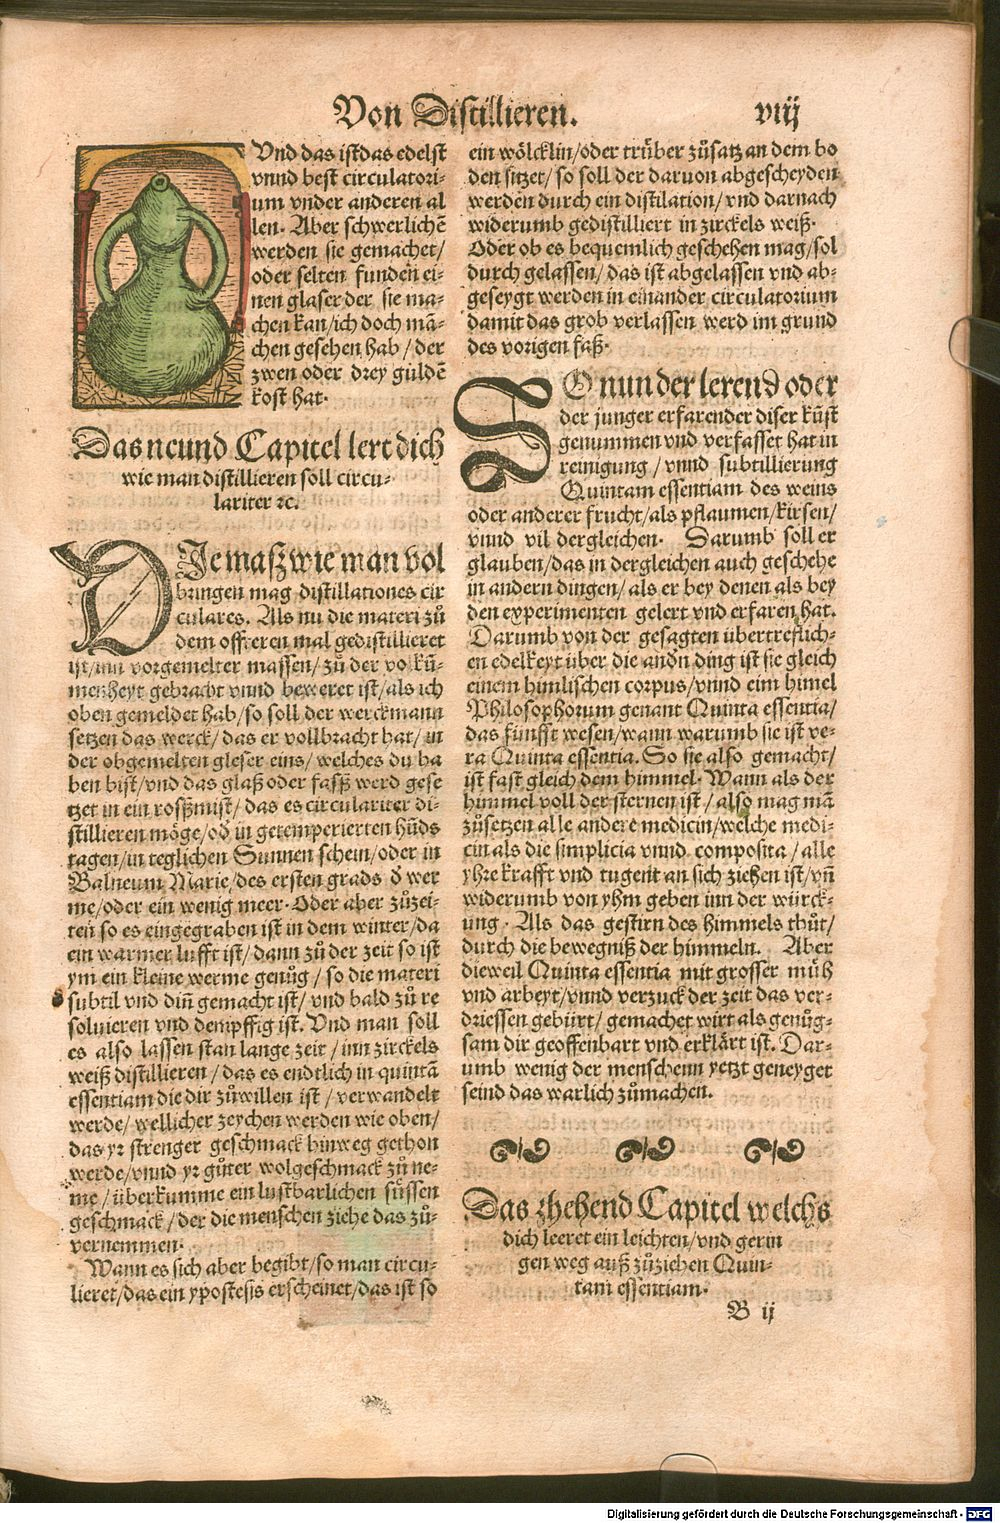 Von Distillieren.
viij
Vnd das ist das edelst
vnnd best circulatori-
um vnder anderen al
len. Aber schwerlichē
werden sie gemachet/
oder selten funden ei-
nen glaser der sie ma-
chen kan/ich doch mā-
chen gesehen hab/der
zwen oder drey güldē
kost hat.
Das neund Capitel lert dich
wie man distillieren soll circu-
lariter ⁊c.
DJe masz wie man vol
bringen mag distillationes cir
culares. Als nu die materi zů
dem offteren mal gedistillieret
ist/inn vorgemelter massen/zů der volkū-
menheyt gebracht vnnd beweret ist/als ich
oben gemeldet hab/so soll der werckmann
setzen das werck/das er vollbracht hat/in
der obgemelten gleser eins/welches du ha
ben bist/vnd das glaß oder fassz werd gese
tzet in ein rossmist/das es circulariter di-
stillieren möge/oď in getemperierten hūds
tagen/in teglichen Sunnen schein/oder in
Balneum Marie/des ersten grads ď wer
me/oder ein wenig meer. Oder aber zůzei-
ten so es eingegraben ist in dem winter/da
ein warmer lufft ist/dann zů der zeit so ist
ym ein kleine werme genůg/so die materi
subtil vnd diñ gemacht ist/vnd bald zů re
soluieren vnd dempffig ist. Vnd man soll
es also lassen stan lange zeit/inn zirckels
weiß distillieren/das es endtlich in quintā
essentiam die dir zůwillen ist/verwandelt
werde/wellicher zeychen werden wie oben/
das yr strenger geschmack hinweg gethon
werde/vnnd yr gůter wolgeschmack zů ne-
me/überkumme ein lustbarlichen süssen
geschmack/der die menschen ziehe das zů-
vernemmen.
Wann es sich aber begibt/so man circu-
lieret/das ein ypostesis erscheinet/das ist so
ein wölcklin/oder trüber zůsatz an dem bo
den sitzet/so soll der daruon abgescheyden
werden durch ein distilation/vnd darnach
widerumb gedistilliert in zirckels weiß.
Oder ob es bequemlich geschehen mag/sol
durch gelassen/das ist abgelassen vnd ab-
geseygt werden in einander circulatorium
damit das grob verlassen werd im grund
des vorigen faß.
SO nun der lerend oder
der junger erfarender diser kūst
genummen vnd verfasset hat in
reinigung/vnnd subtillierung
Quintam essentiam des weins
oder anderer frucht/als pflaumen/kirsen/
vnnd vil dergleichen. Darumb soll er
glauben/das in dergleichen auch geschehe
in andern dingen/als er bey denen als bey
den experimenten gelert vnd erfaren hat.
Darumb von der gesagten übertreflich-
en edelkeyt über die andn ding ist sie gleich
einem himlischen corpus/vnnd eim himel
Philosophorum genant Quinta essentia/
das fünfft wesen/wann warumb sie ist ve-
ra Quinta essentia. So sie also gemacht/
ist fast gleich dem himmel. Wann als der
himmel voll der sternen ist/also mag mā
zůsetzen alle andere medicin/welche medi-
cin als die simplicia vnnd composita/alle
yhre krafft vnd tugent an sich ziehen ist/vñ
widerumb von yhm geben inn der würck-
ung. Als das gestirn des himmels thůt/
durch die bewegniß der himmeln. Aber
dieweil Quinta essentia mit grosser müh
vnd arbeyt/vnnd verzuck der zeit das ver-
driessen gebürt/gemachet wirt als genůg-
sam dir geoffenbart vnd erklärt ist. Dar-
umb wenig der menschenn yetzt geneyget
seind das warlich zůmachen.
Das zhehend Capitel welchs
dich leeret ein leichten/vnd gerin
gen weg auß zůziehen Quin-
tam essentiam.
B ij
Digitalisierung gefördert durch die Deutsche Forschungsgemeinschaft - DFG